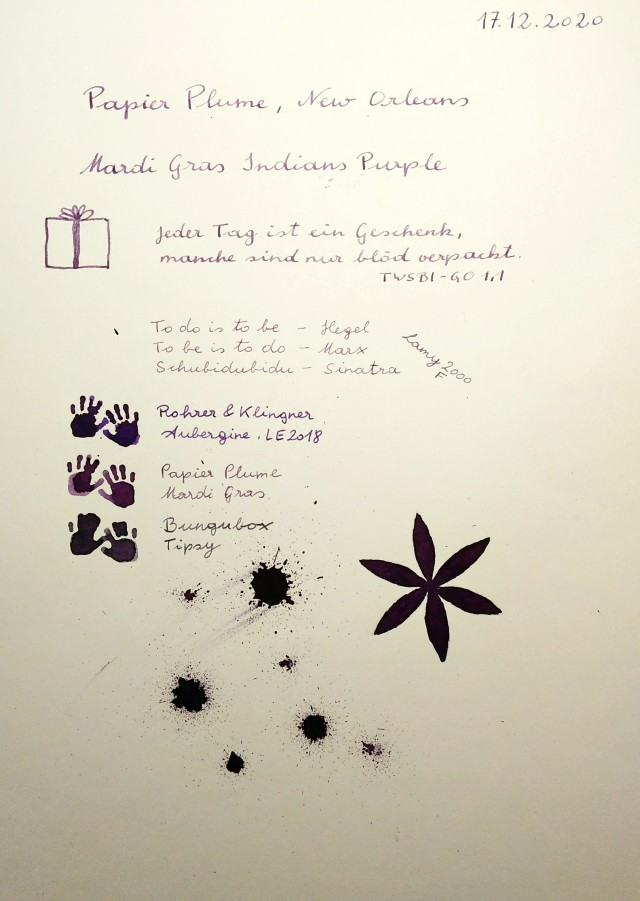 17.12.2020
Papier Plume, New Orleans
Mardi Gras Indians Purple
Jeder Tag ist ein Geschenk,
manche sind nur blöd verpackt.
TWSBI-GO 1,1
To do is to be - Hegel
To be is to do - Marx
Schubidubidu - Sinatra
Lamy 2000
F
Rohrer & Klingner
Aubergine. LE2018
Papier Plume
Mardi Gras
Bungubox
Tipsy